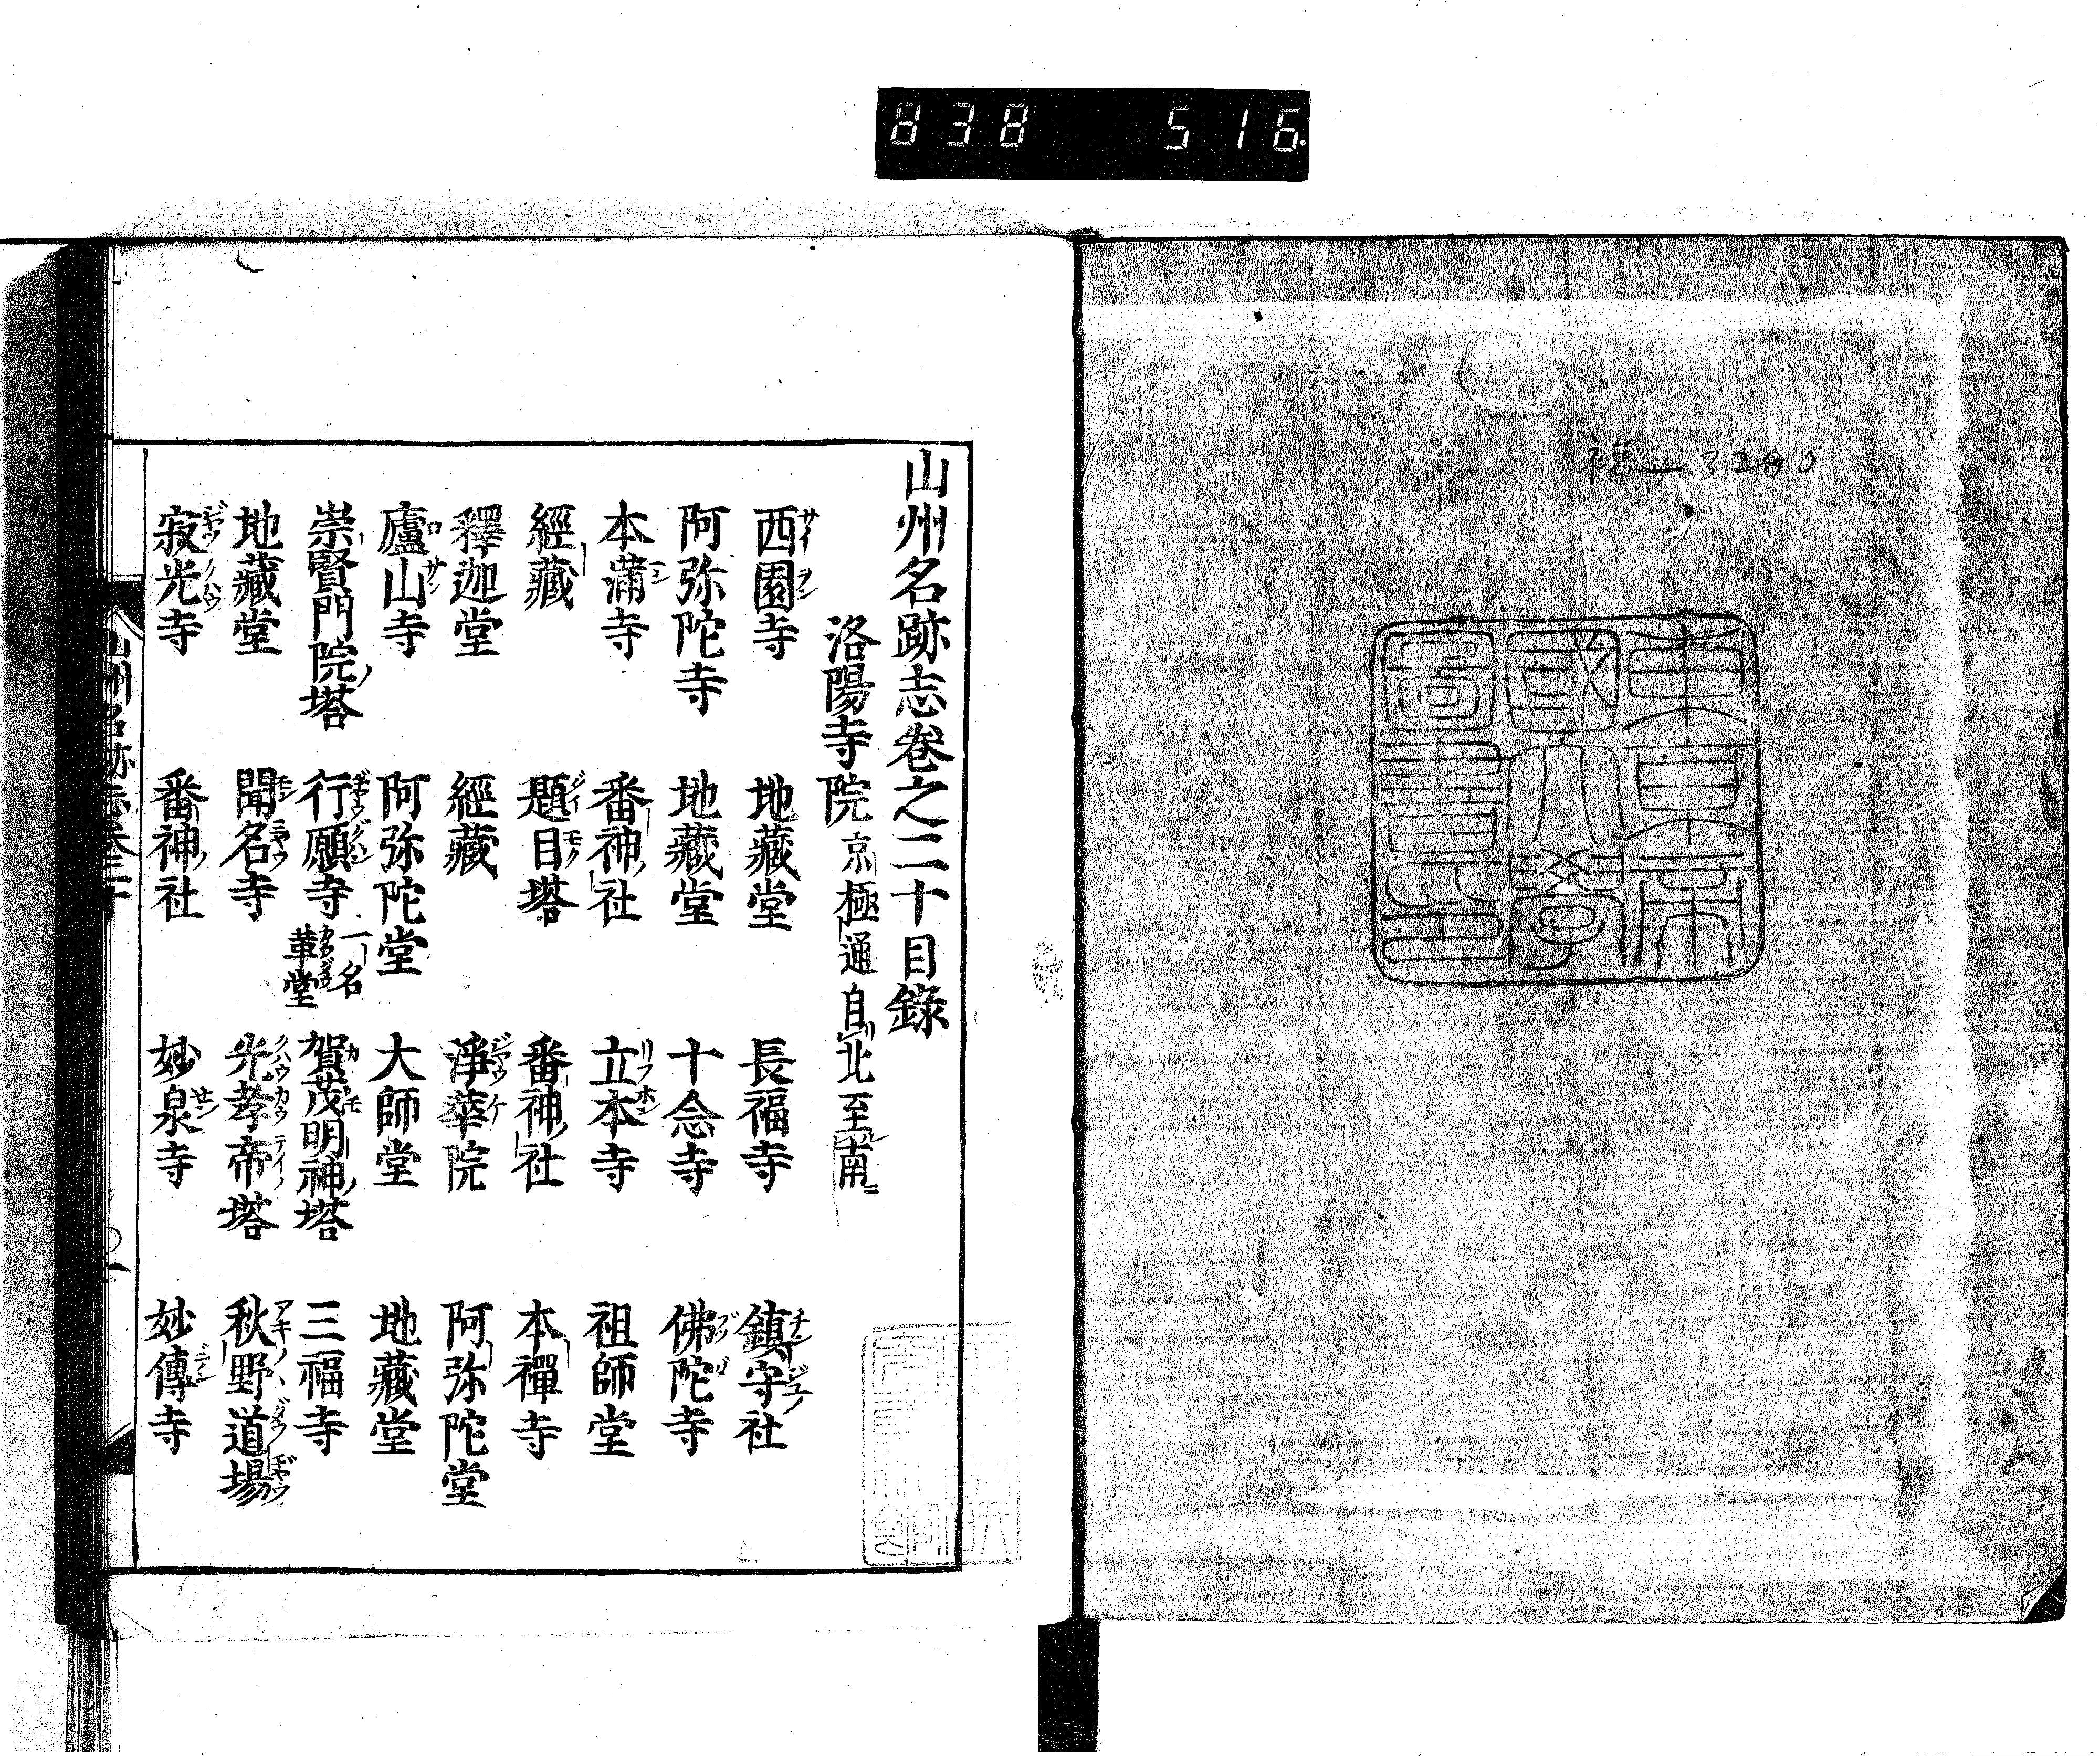 838 516
3280
東京帝
國大學
圖書印
山州名跡志卷之二十目錄
洛陽寺院 京極通自北至南
西園寺 地藏堂 長福寺 鎮守社
阿弥陀寺 地藏堂 十念寺 佛陀寺
本満寺 番神社 立本寺 祖師堂
經藏 題目塔 番神社 本禪寺
釋迦堂 經藏 淨華院 阿弥陀堂
廬山寺 阿弥陀堂 大師堂 地藏堂
崇賢門院塔 行願寺 一名革堂 賀茂明神塔 三福寺
地藏堂 聞名寺 光孝帝塔 秋野道場
寂光寺 番神社 妙泉寺 妙傳寺
山州名跡志卷二十